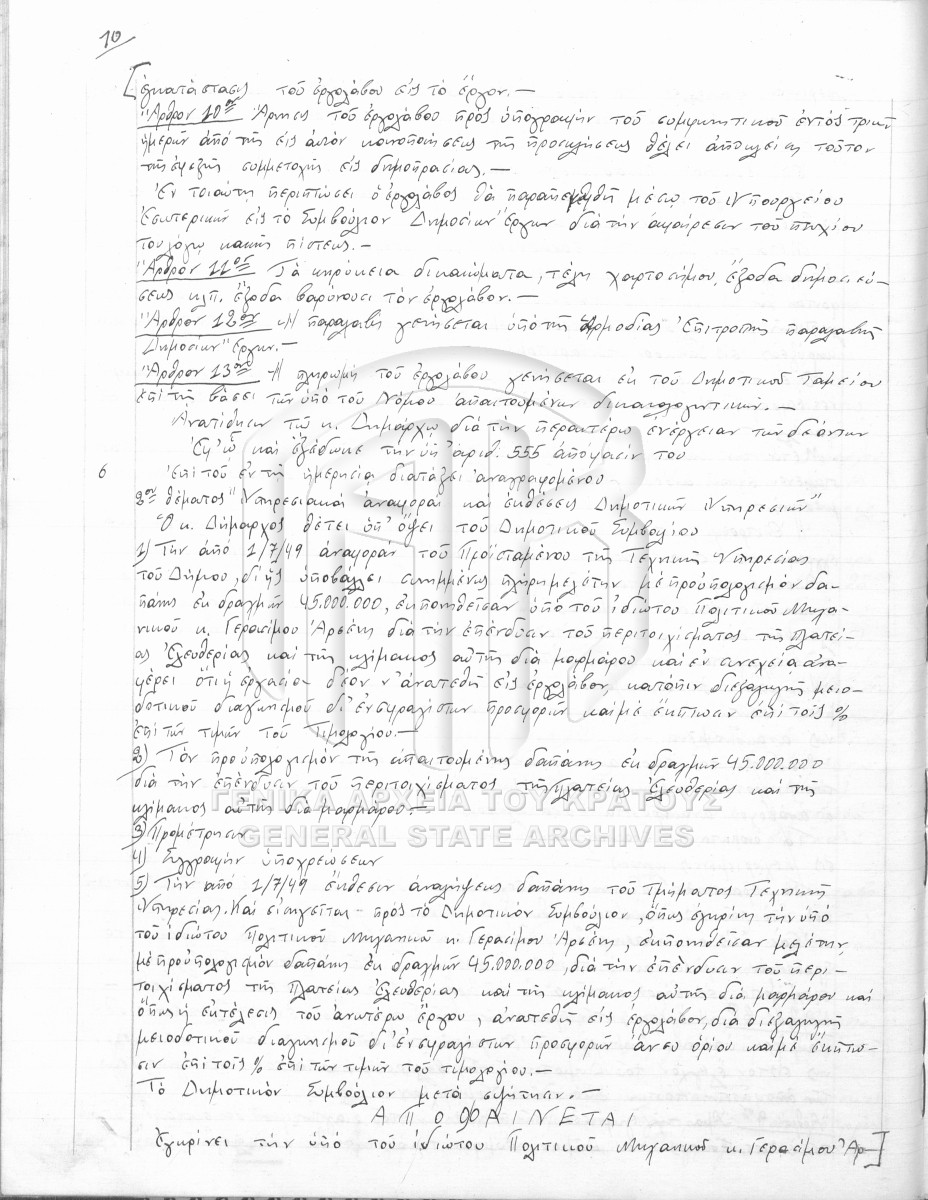 10
[ἐγκατάστασις τοῦ ἐργολάβου εἰς τὸ ἔργον.—
Ἄρθρον 10ον Ἄρνησις τοῦ ἐργολάβου πρὸς ὑπογραφὴν τοῦ συμφωνητικοῦ ἐντὸς τριῶν
ἡμερῶν ἀπὸ τῆς εἰς αὐτὸν κοινοποιήσεως τῆς προσκλήσεως θέλει ἀποκλείσει τοῦτον
τῆς ἐφεξῆς συμμετοχῆς εἰς δημοπρασίας.—
Ἐν τοιαύτῃ περιπτώσει ὁ ἐργολάβος θὰ παραπεμφθῇ μέσῳ τοῦ Ὑπουργείου
Ἐσωτερικῶν εἰς τὸ Συμβούλιον Δημοσίων Ἔργων διὰ τὴν ἀφαίρεσιν τοῦ πτυχίου
του λόγῳ κακῆς πίστεως.—
Ἄρθρον 11ον Τὰ κηρύκεια δικαιώματα, τέλη χαρτοσήμου, ἔξοδα δημοσιεύ-
σεως κλπ. ἔξοδα βαρύνουσι τὸν ἐργολάβον.—
Ἄρθρον 12ον Ἡ παραλαβὴ γενήσεται ὑπὸ τῆς ἁρμοδίας Ἐπιτροπῆς παραλαβῆς
Δημοσίων Ἔργων.—
Ἄρθρον 13ον Ἡ πληρωμὴ τοῦ ἐργολάβου γενήσεται ἐκ τοῦ Δημοτικοῦ Ταμείου
ἐπὶ τῇ βάσει τῶν ὑπὸ τοῦ Νόμου ἀπαιτουμένων δικαιολογητικῶν.—
Ἀνατίθησιν τῷ κ. Δημάρχῳ διὰ τὴν περαιτέρω ἐνέργειαν τῶν δεόντων
Ἐφ' ᾧ καὶ ἐξέδωκε τὴν ὑπ' ἀριθ. 555 ἀπόφασίν του
6 Ἐπὶ τοῦ ἐν τῇ ἡμερησίᾳ διατάξει ἀναγραφομένου
2ου θέματος "Ὑπηρεσιακαὶ ἀναφοραὶ καὶ ἐκθέσεις Δημοτικῶν Ὑπηρεσιῶν"
Ὁ κ. Δήμαρχος θέτει ὑπ' ὄψει τοῦ Δημοτικοῦ Συμβουλίου
1) Τὴν ἀπὸ 1/7/49 ἀναφορὰν τοῦ Προϊσταμένου τῆς Τεχνικῆς Ὑπηρεσίας
τοῦ Δήμου, δι' ἧς ὑποβάλλει συνημμένως πλήρη μελέτην μὲ προϋπολογισμὸν δα-
πάνης ἐκ δραχμῶν 45.000.000, ἐκπονηθεῖσαν ὑπὸ τοῦ ἰδιώτου Πολιτικοῦ Μηχα-
νικοῦ κ. Γερασίμου Ἀρσένη διὰ τὴν ἐπένδυσιν τοῦ περιτοιχίσματος τῆς Πλατεί-
ας Ἐλευθερίας καὶ τῆς κλίμακος αὐτῆς διὰ μαρμάρου καὶ ἐν συνεχείᾳ ἀνα-
φέρει ὅτι ἡ ἐργασία δέον ν' ἀνατεθῇ εἰς ἐργολάβον, κατόπιν διεξαγωγῆς μειο-
δοτικοῦ διαγωνισμοῦ δι' ἐνσφραγίστων προσφορῶν καὶ μὲ ἔκπτωσιν ἐπὶ τοῖς %
ἐπὶ τῶν τιμῶν τοῦ Τιμολογίου.—
2) Τὸν προϋπολογισμὸν τῆς ἀπαιτουμένης δαπάνης ἐκ δραχμῶν 45.000.000
διὰ τὴν ἐπένδυσιν τοῦ περιτοιχίσματος τῆς Πλατείας Ἐλευθερίας καὶ τῆς
κλίμακος αὐτῆς διὰ μαρμάρου.—
ΓΕΝΙΚΑ ΑΡΧΕΙΑ ΤΟΥ ΚΡΑΤΟΥΣ
3) Προμέτρησιν
GENERAL STATE ARCHIVES
4) Συγγραφὴν ὑποχρεώσεων
5) Τὴν ἀπὸ 1/7/49 ἔκθεσιν ἀναλήψεως δαπάνης τοῦ τμήματος Τεχνικῆς
Ὑπηρεσίας. Καὶ εἰσηγεῖται πρὸς τὸ Δημοτικὸν Συμβούλιον, ὅπως ἐγκρίνῃ τὴν ὑπὸ
τοῦ ἰδιώτου Πολιτικοῦ Μηχανικοῦ κ. Γερασίμου Ἀρσένη, ἐκπονηθεῖσαν μελέτην,
μὲ προϋπολογισμὸν δαπάνης ἐκ δραχμῶν 45.000.000, διὰ τὴν ἐπένδυσιν τοῦ περι-
τοιχίσματος τῆς Πλατείας Ἐλευθερίας καὶ τῆς κλίμακος αὐτῆς διὰ μαρμάρου καὶ
ὅπως ἡ ἐκτέλεσις τοῦ ἀνωτέρω ἔργου, ἀνατεθῇ εἰς ἐργολάβον, διὰ διεξαγωγῆς
μειοδοτικοῦ διαγωνισμοῦ δι' ἐνσφραγίστων προσφορῶν ἄνευ ὁρίου καὶ μὲ ἔκπτω-
σιν ἐπὶ τοῖς % ἐπὶ τῶν τιμῶν τοῦ τιμολογίου.—
Τὸ Δημοτικὸν Συμβούλιον μετὰ συζήτησιν.—
ΑΠΟΦΑΙΝΕΤΑΙ
Ἐγκρίνει τὴν ὑπὸ τοῦ ἰδιώτου Πολιτικοῦ Μηχανικοῦ κ. Γερασίμου Ἀρ-]